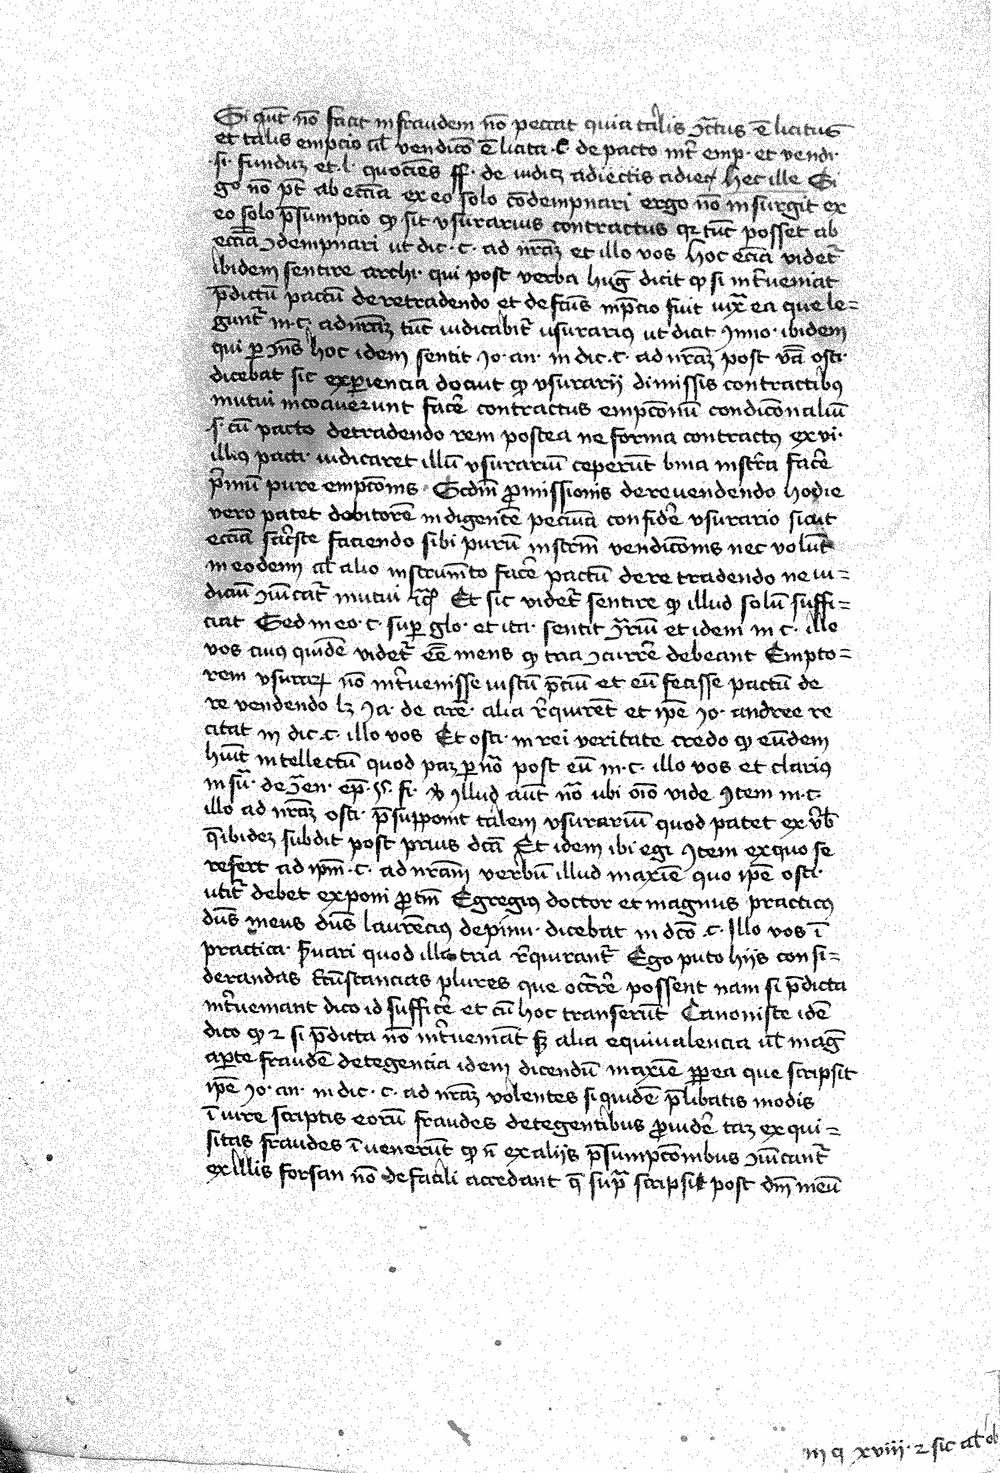 Si aut nō faciāt in fraudem nō peccāt quia talis ɔ̄ctus ē licitus
et talis empcio al' vendicō ē licita .C. de pacto int̄ emp. et vendi.
.si. funduȝ et .l. quociēs ff. de iudicȝ adiectis adieꝯ hec ille Si
go nō pt̄ ab ecc̄ia ex eo solo cōdempnari ergo nō insurgit ex
eo solo p̄sumpcio ꝙ sit vsurarius contractus qꝛ tūc posset ab
ecc̄ia ɔdempnari ut dic. c. ad nr̄aȝ et illo vos hoc ecīā videt̄
ibidem sentire archi. qui post verba huḡ dicit ꝙ si int̄ueniāt
p̄dictū pactū de retradendo et defcūs in p̄cio fuit iux̄ ea que le=
gunt̄ in .c. ad nr̄aȝ tūc iudicabit̄ vsurariꝯ ut dicit Inno. ibidem
qui ꝑ ɔn̄s hoc idem sentit Jo. an. in dic. c. ad nr̄aȝ post v̄ba osti.
dicebat sic experiencia docuit ꝙ vsurarij dimissis contractibꝯ
mutui incoauerunt facē contractus empcōnū condicōnaliū
.s. cū pacto de tradendo rem postea ne forma contractꝯ ex vi.
illiꝯ pacti iudicaret illū vsurariū ceperūt bina instr̄a facē
p̄mū pure empcōnis. Scd̄m ꝓmissionis de reuendendo hodie
vero patet debitorē indigentē pecuīa confidē vsurario sicut
ecc̄ia faciendo sibi purū instrm̄ vendicōnis nec volūt
in eodem al' alio instrum̄to facē pactū de re tradendo ne iu=
diciū mutui Et sic videt̄ sentire ꝙ illud solū suffi=
ciat Sed in eo. c. suꝑ glo. et ita. sentit ɔ̄riū et idem in c. ille
vos cuiꝯ quidē videt̄ eē mens ꝙ tria ɔcurrē debeant Empto=
rem vsurarꝫ nō int̄uenisse iustū p̄ciū et eū fecisse pactū de
re vendendo lȝ Ja. de arē. alia rꝰquirēt et ip̄e Jo. andree re
citat in dic. c. illo vos Et osti. in rei veritate credo ꝙ eūdem
hūit intellectū quod paȝ ꝑ nō post eū in .c. illo vos et clariꝯ
in sū. de illud aūt nō ubi oīo vide Item in .c.
illo ad nr̄aȝ osti. p̄supponit talem vsurariū quod patet ex v̄b
q̄ ibideȝ subdit post prius dc̄ā Et idem ibi egi Item ex quo se
refert ad ip̄m .c. ad nr̄am verbū illud maxīe quo ip̄e osti.
utit̄ debet exponi ꝓtm̄ Egregiꝯ doctor et magnus practicꝯ
dūs meus dūs laurēciꝯ de pinu. dicebat in dcō .c. Illo vos ī
practica. s̄uari quod illa tria rꝰquirant̄ Ego puto hijs consi=
derandas cūstancias plures que occ̄rē possent nam si p̄dicta
int̄ueniant dico id sufficē et cū hoc transerūt Canoniste idē
dico ꝙ ⁊ si p̄dicta nō int̄ueniāt sȝ alia equiualencia ul' maḡ
aꝑte fraudē detegencia idem dicendū maxīe ꝓpt̄ ea que scripsit
ip̄e Jo. an. in dic. c. ad nr̄aȝ volentes siquidē p̄libatis modis
ī iure scriptis eorū fraudes detegentibus ꝓuidē taȝ exqui=
sitas fraudes īuenerūt ꝙ n̄ ex alijs p̄sumpcōnibus ɔiūcant̄
ex illis forsan nō de facili accedant q̄ suꝑ scripsit post dm̄ meū
in q xviii. ⁊ sic al' ob